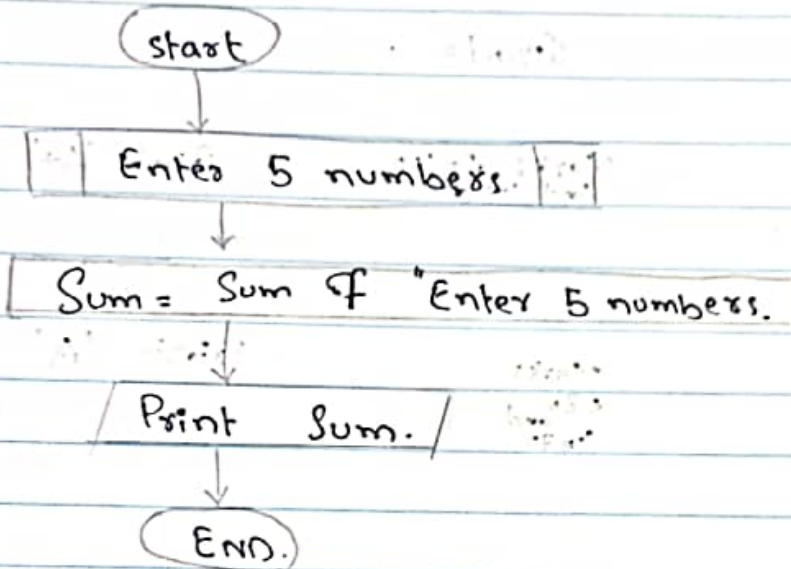 start
Enter 5 numbers.
Sum = Sum of "Enter 5 numbers.
Print Sum.
END.